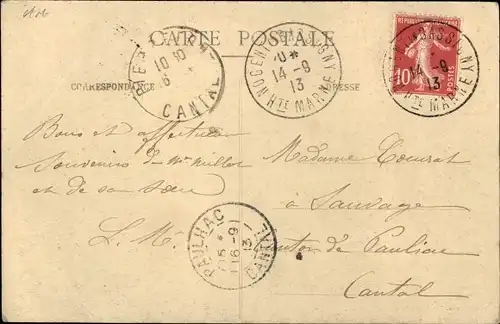 CARTE POSTALE
CORRESPONDANCE
ADRESSE
CANTAL
LONGEAU-PERCEY
14 -9
13
HTE MARNE
10
POSTES
14 -9
13
HTE MARNE
Bons et affectueux
Souvenirs de Mr Millot
et de sa sœur
L. M.
Madame Courat
à Sauvage
Canton de Pauliac
Cantal
PAULHAC
15 *
16 -9
13
CANTAL